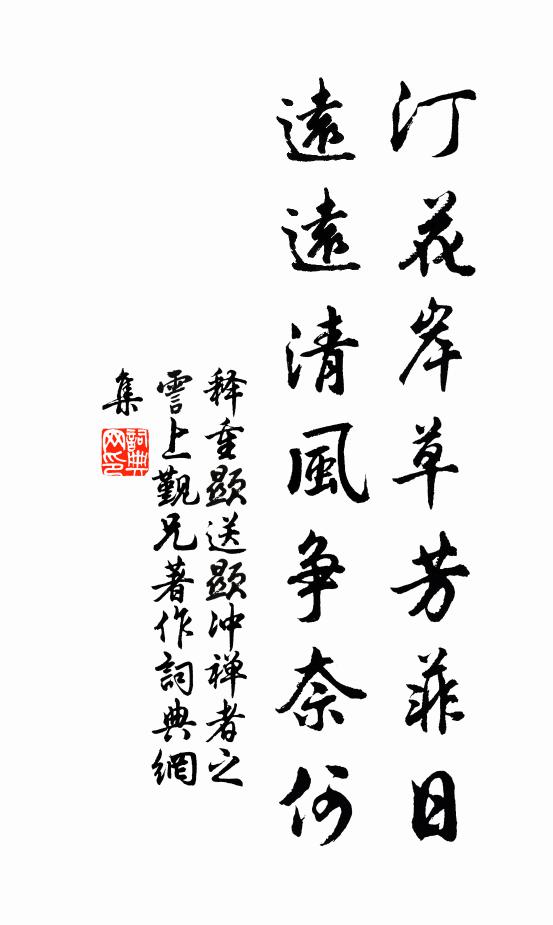 汀花岸草芳菲日
遠遠清風争奈何
释重顯送顯冲禅者之
霅上觐兄著作詞典網
集
詞典网印